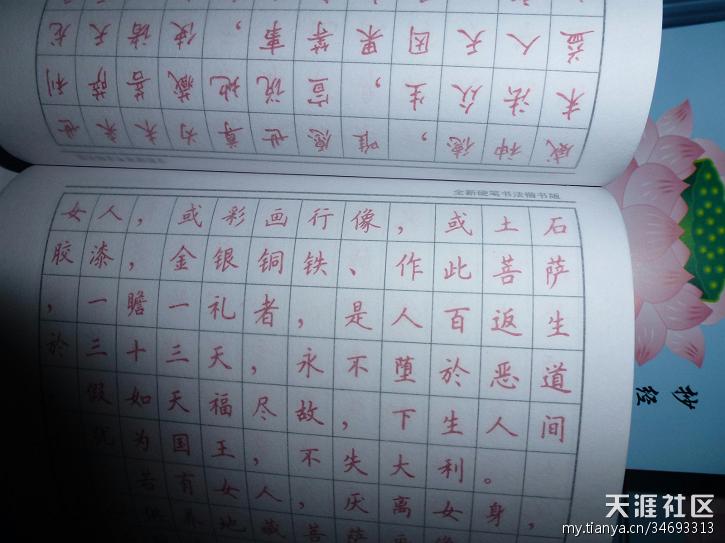 威神德，唯愿世尊为未来世
末法众生，宣说地藏菩萨利
益人天因果等事，使诸天龙
全新硬笔书法楷书版
女人，或彩画行像，或土石
胶漆，金银铜铁、作此菩萨
，一瞻一礼者，是人百返生
於三十三天，永不堕於恶道
假如天福尽故，下生人间
犹为国王，不失大利。
若有女人，厌离女身，
供养地藏菩萨
抄经
天涯社区
my.tianya.cn/34693313